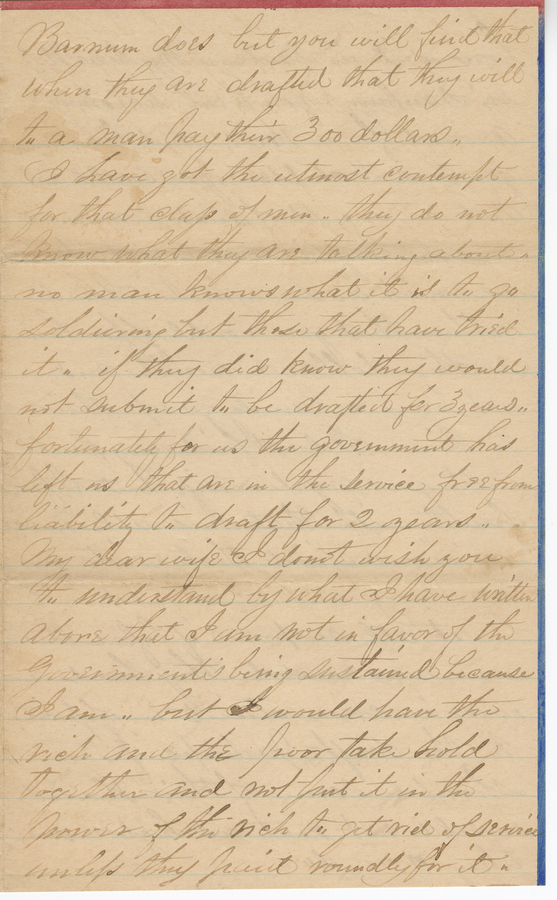 Barnum does but you will find that
when they are drafted that they will
to a man pay their 300 dollars„
I have got the utmost contempt
for that class of men„ they do not
know what they are talking about„
no man knows what it is to go
soldiering but those that have tried
it„ if they did know they would
not submit to be drafted for 3 years„
fortunately for us the government has
left us that are in the service free from
liability to draft for 2 years„
My dear wife I donot wish you
to understand by what I have written
above that I am not in favor of the
Government's being sustained because
I am„ but I would have the
rich and the poor take hold
together and not put it in the
power of the rich to get rid of service
unless they paid roundly for it„